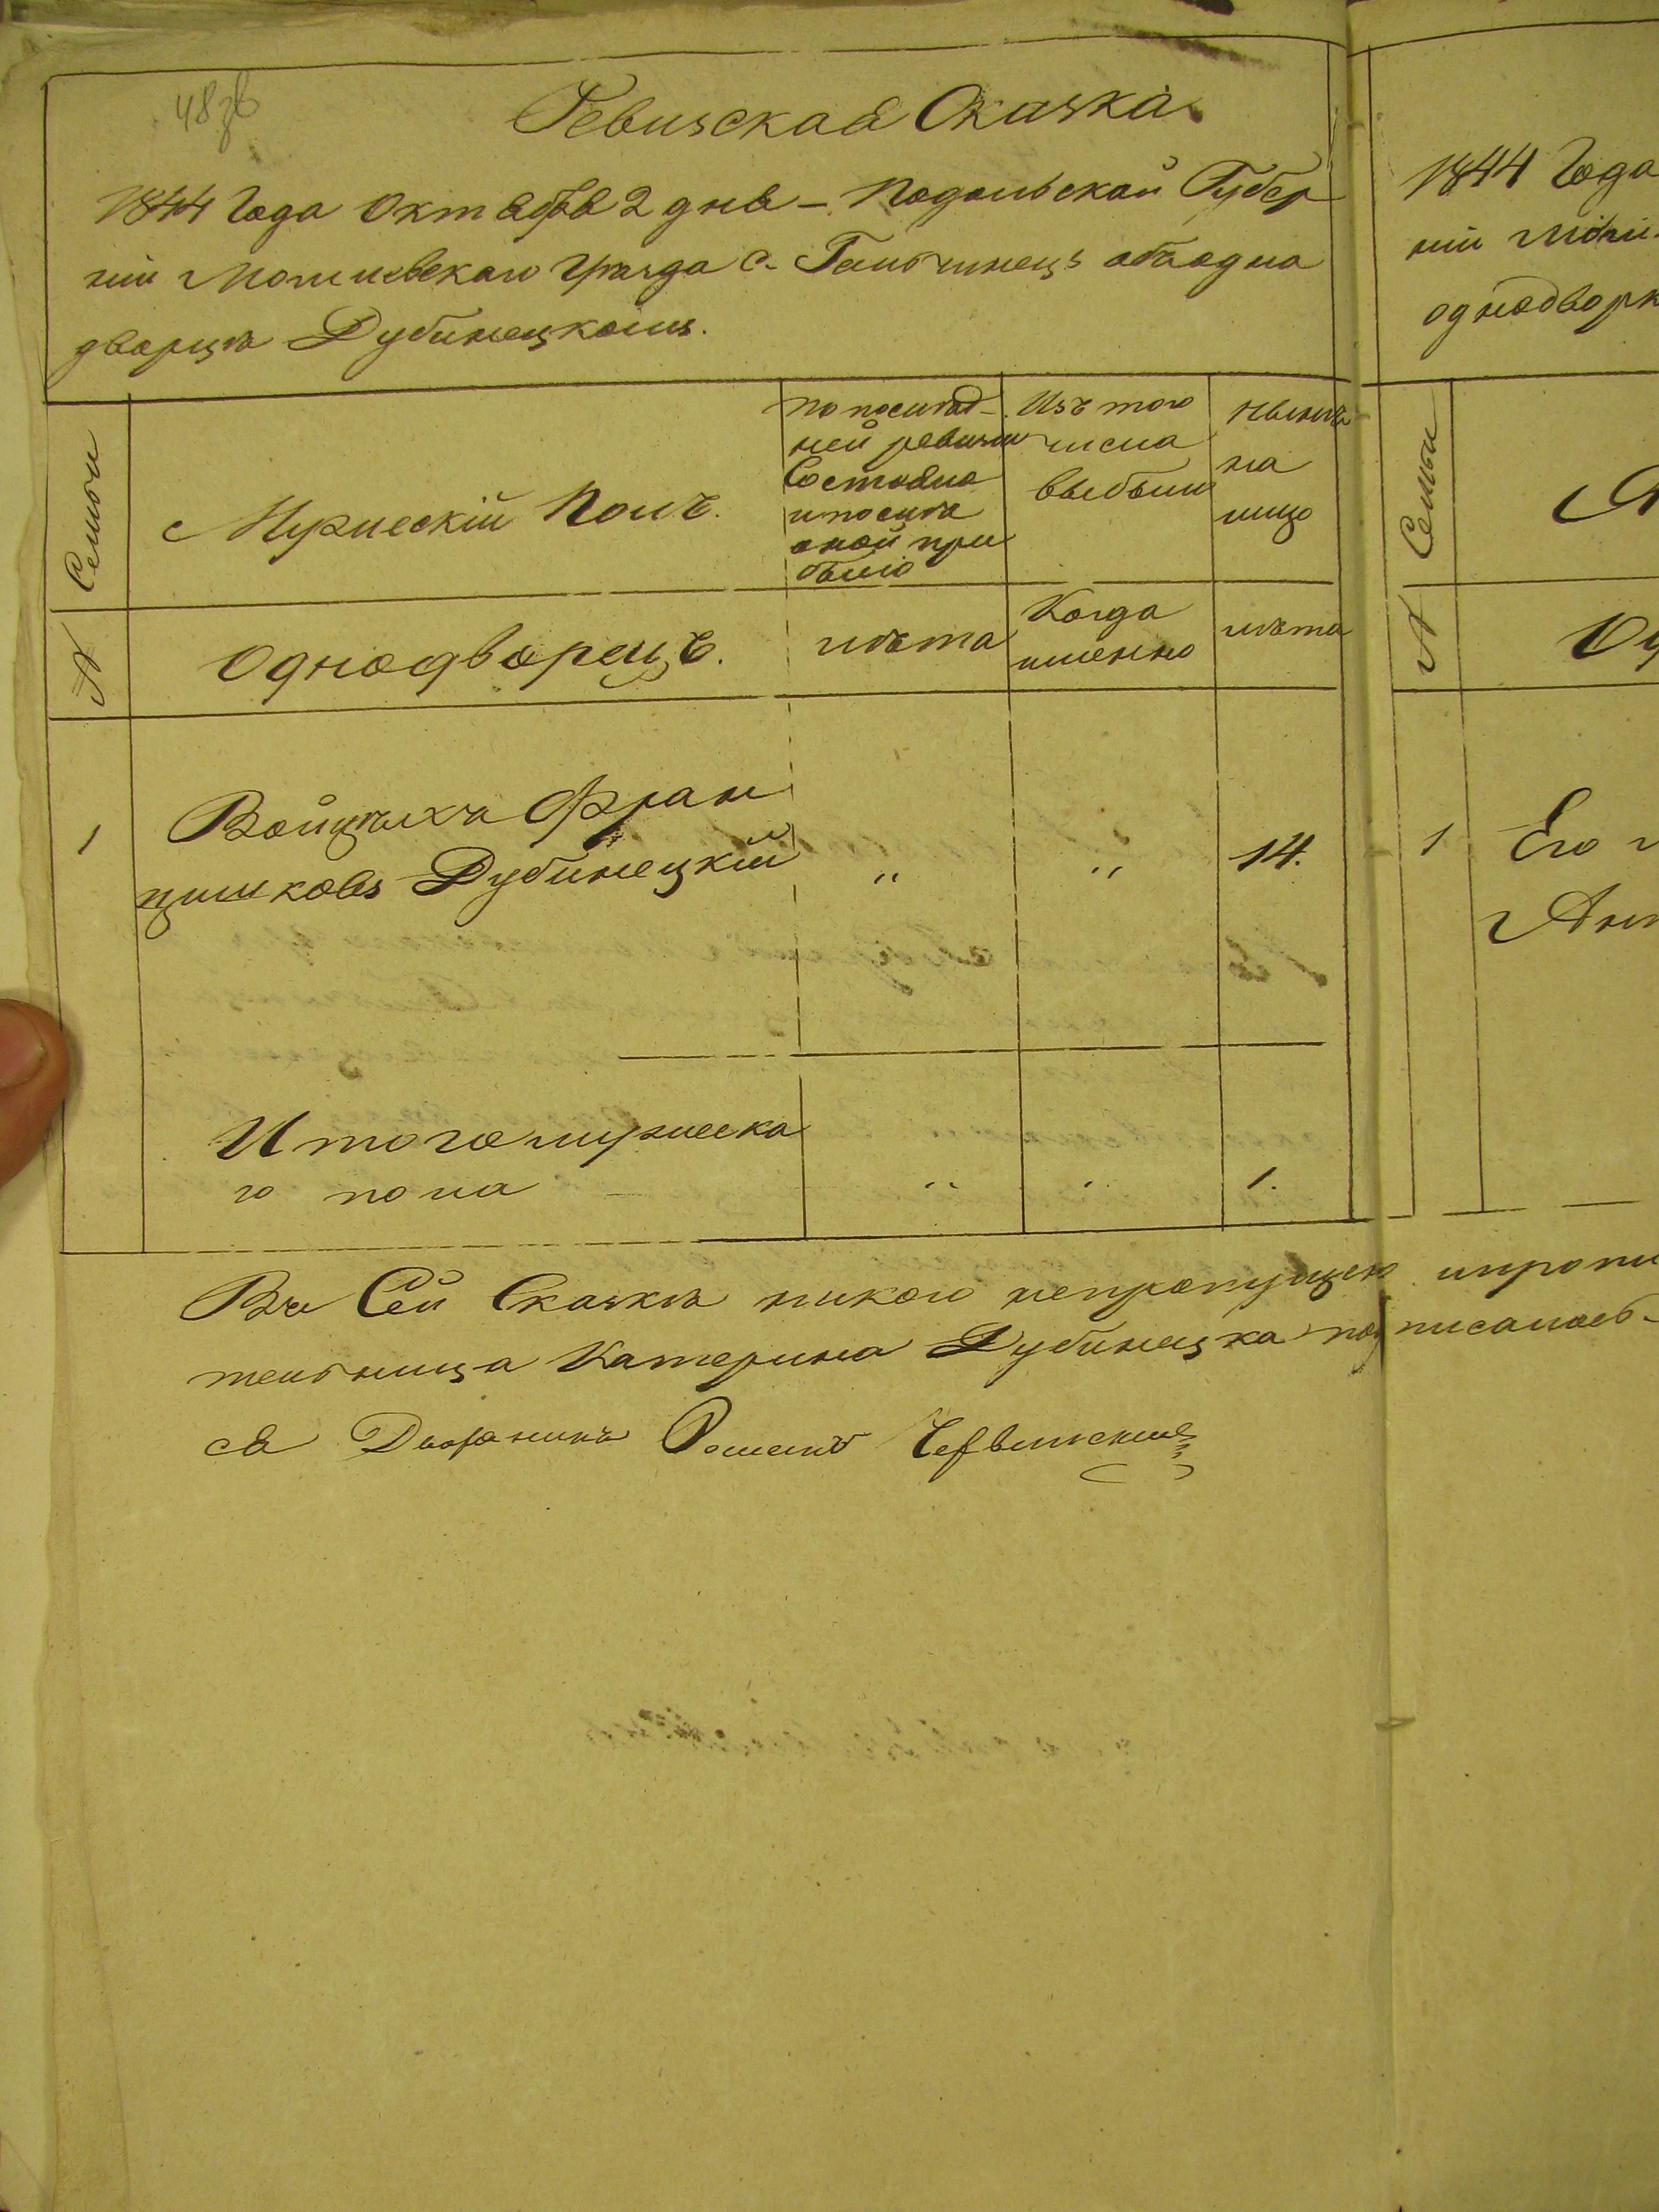 48 зв
Ревизская Сказка
1844 Года Октября 2 дня – Подольской Губер
ніи Могилевскаго Уезда с. Гальчинецъ объ одно
дворцѣ Дубинецкомъ.
№ Семьи
Мужескій Полъ.
по послѣд-
ней ревизіи
Состояло
и послѣ
оной при
было
Изъ того
числа
выбыли
Нынѣ
на
лицо
Однодворецъ.
лѣта
Когда
именно
лѣта
1
Войцѣхъ Фран
цишковъ Дубинецкій
"
"
14.
Итого мужеска
го пола
"
"
1.
Въ Сей Сказкѣ никого непропущено
тельница Катерина Дубинецка подписалась-
ся Дворянинъ Романъ Червинскій
1844 Года
ніи Моги-
однодворк
№ Семьи
1
Его